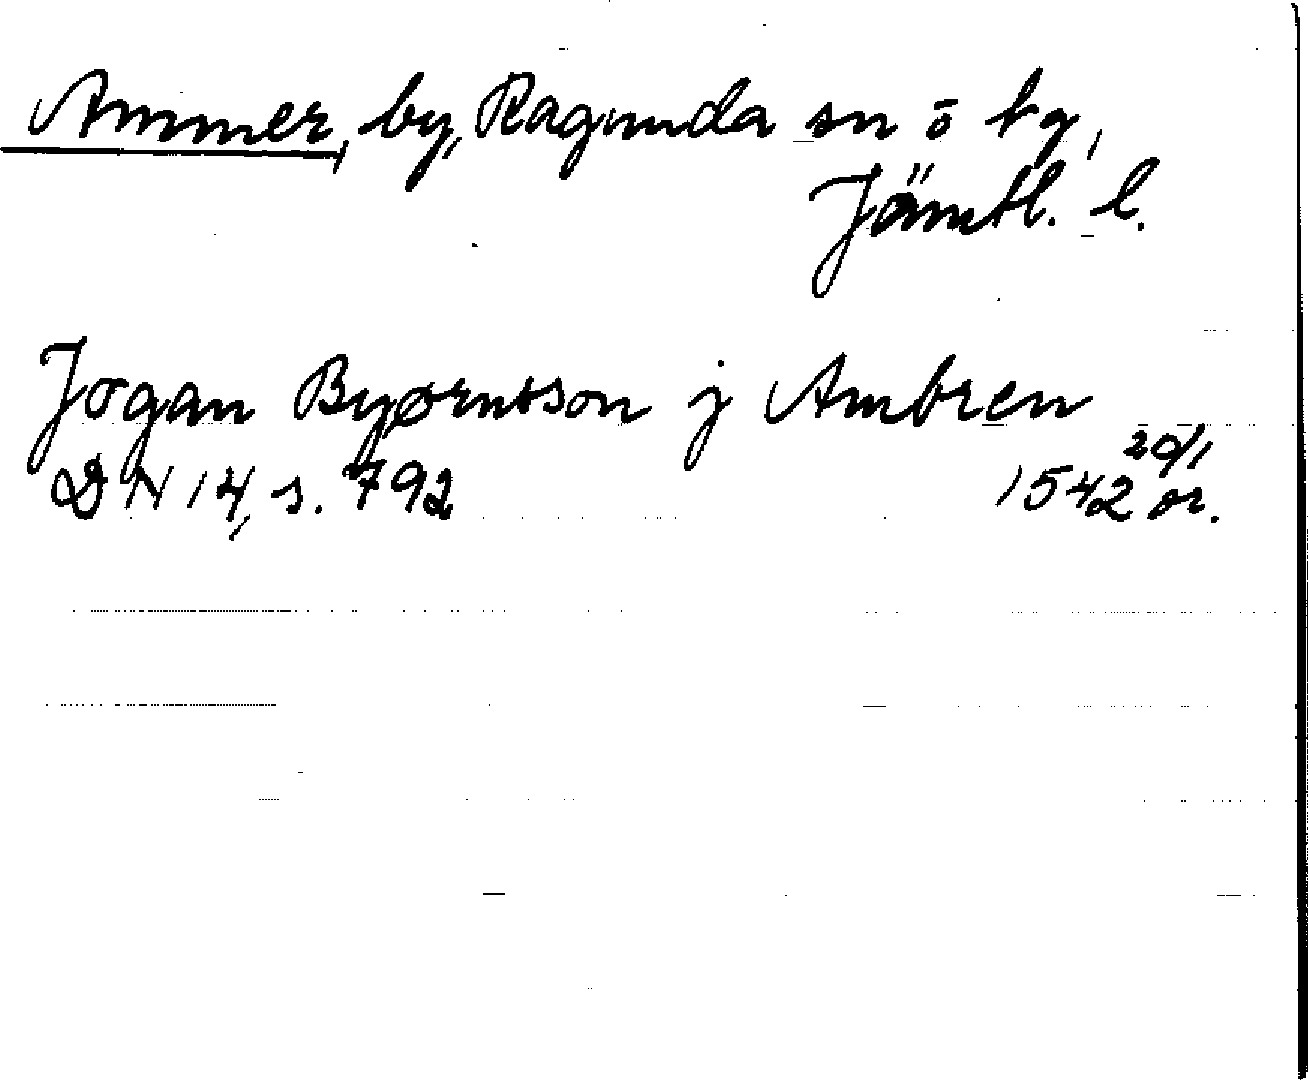 Ammer, by, Ragunda sn o tg,
Jämtl. l.
Jogan Byørntsson j Ambren
DN 14, s. 792 1542 20/1 or.